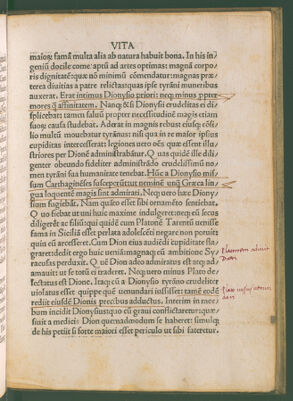 VITA
maior; famā multa alia ab natura habuit bona. In his in/
geniū docile come aptū ad artes optimas: magnā corpo/
ris dignitatē: quæ nō minimū cōmendatur: magnas præ/
terea diuitias a patre relictas: quas ipse tyrāni muneribus
auxerat. Erat intimus Dionysio priori: neq; minus ppter
mores q̄ affinitatem. Nanq; & si Dionysii crudelitas ei di/
splicebat: tamen saluū propter necessitudinē magis etiam
suor; causa studebat. Aderat in magnis rebus eiusq; cōsi/
lio multū mouebatur tyrānus: nisi qua in re maior ipsius
cupiditas intercesserat: legiones uero oēs quæ essent illu/
striores per Dionē administrabātur. Q uas quidē ille dili/
genter obeundo fideliter administrādo crudelissimū no/
men tyrāni sua humanitate tenebat. Hūc a Dionysio mis/
sum Carthaginēses suscepexerūt ut neminē unq̄ Græca lin/
gua loquentē magis sint admirati. Neq; uero hæc Diony/
sium fugiebāt. Nam quāto esset sibi ornamēto sentiebat.
Q uo fiebat ut uni huic maxime indulgeret: neq; eū secus
diligerēt ac filiū: qui quidē cum Platonē Tarentū uenisse
fama in Siciliā esset perlata adolescēti negare non poterit
quin eū arcesseret. Cum Dion eius audiēdi cupiditate fla/
graret: dedit ergo huic ueniā: magnaq; eū ambitione Sy/
racusas perduxit. Q uē Dion adeo admiratus est: atq; ad/
amauit ut se totū ei traderet. Neq; uero minus Plato de/
lectatus est Dione. Itaq; cū a Dionysio tyrāno crudeliter
uiolatus esset quippe quē uenundari iussisset: tamē eodē
rediit eiusdē Dionis precibus adductus. Interim in mor/
bum incidit Dionysius: quo cū graui conflictaretur: quæ/
siuit a medicis: Dion quemadmodum se haberet: simulq;
de his petiit si forte maiori esset periculo ut sibi fateretur.
Platonem adiuit
Dion